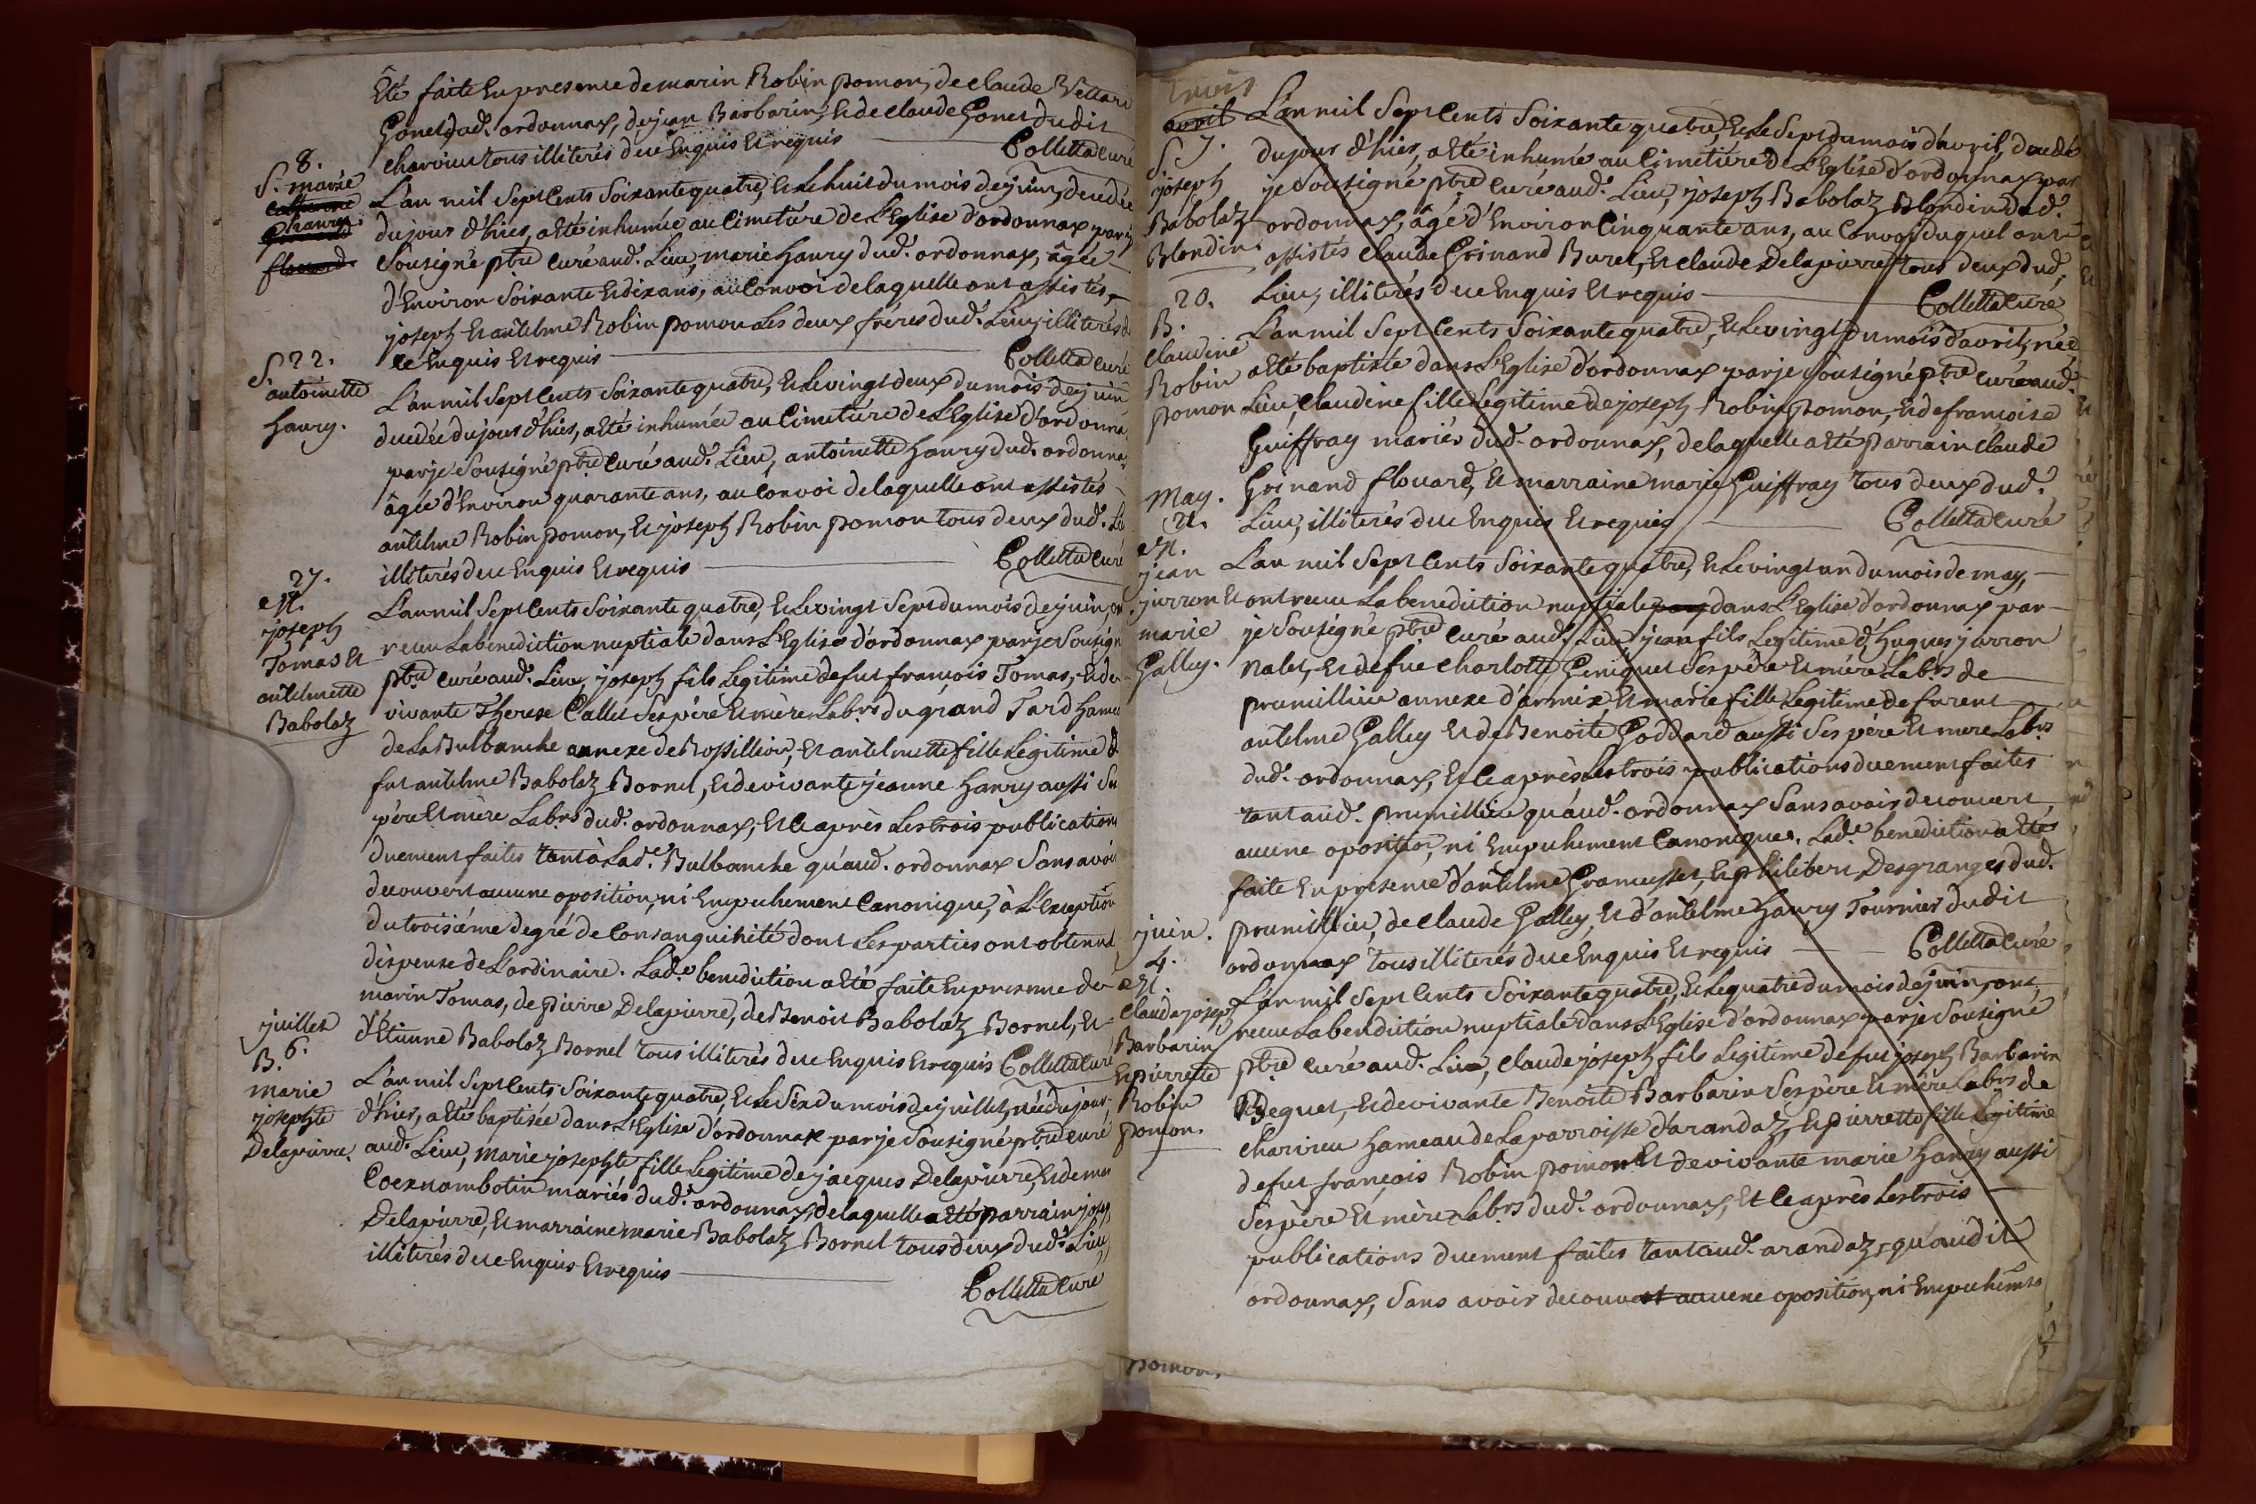 Eté faite En presence de marin Robin pomon, de claude Vettard
Gonet dud.t ordonnax, de jean Barbarin, Et de claude Gonet dudit
charvieu tous illiterés de ce Enquis Et requis Colletta Curé
8.
S. marie
catherine
haury.
flouard
L'an mil Sept Cents Soixante quatre, Et Le huit du mois de juin, decedée
du jour d'hier, a Eté inhumée au Cimetiére de L'Eglise d'ordonnax par je
Sousigné ptre Curé aud.t Lieu, marie haury dud.t ordonnax, âgée
d'Environ Soixante Et dix ans, au Convoi de laquelle ont assistés,
joseph Et antelme Robin pomon Les deux fréres dud.t Lieu, illiterés de
ce Enquis Et requis Colletta Curé
S. 22.
antoinette
haury.
L'an mil Sept Cents Soixante quatre, Et Le vingt deux du mois de juin
decedée du jour d'hier, a Eté inhumée au Cimetiére de L'Eglise d'ordonnax
par je Sousigné ptre Curé aud.t Lieu, antoinette haury dud.t ordonnax
âgée d'Environ quarante ans, au Convoi de laquelle ont assistés
antelme Robin pomon, Et joseph Robin pomon tous deux dud.t Lieu
illiterés de ce Enquis Et requis Colletta Curé
27.
M.
joseph
Tomas Et
antelmette
Babolaz
L'an mil Sept Cents Soixante quatre, Et Le vingt Sept du mois de juin, ont
receu La benediction nuptiale dans L'Eglise d'ordonnax par je Sousigné
ptre Curé aud.t Lieu, joseph fils Legitime de fut françois Tomas, Et de
vivante Therese Callet Ses pére Et mére Lab.rs du grand Tard hameau
de La Bulbanche annexe de Rossillion, Et antelmette fille Legitime de
fut antelme Babolaz Bornel, Et de vivante jeanne haury aussi Ses
pére Et mére Lab.rs dud.t ordonnax, Et Ce après Les trois publications
duement faites tant à Lad.e Bulbanche qu'aud.t ordonnax Sans avoir
decouvert aucune oposition, ni Empechement Canonique, à L'exception
du troisiéme degré de Consanguinité dont Les parties ont obtenu
dispense de L'ordinaire. Lad.e benediction a Eté faite En presence de
marin Tomas, de pierre Delapierre, de Benoit Babolaz Bornel, Et
d'Etienne Babolaz Bornel tous illiterés de ce Enquis Et requis Colletta Curé
juillet
6.
B.
marie
josephte
Delapierre.
L'an mil Sept Cents Soixante quatre, Et Le Six du mois de juillet, née du jour
d'hier, a Eté baptisée dans L'Eglise d'ordonnax par je Sousigné ptre Curé
aud.t Lieu, marie josephte fille Legitime de jacques Delapierre, Et de
mariés dud.t ordonnax, de laquelle a Eté parrain joseph
Delapierre, Et marraine marie Babolaz Bornel tous deux dud.t Lieu,
illiterés de ce Enquis Et requis
Colletta Curé
avril
7.
S.
joseph
Babolaz
Blondin.
L'an mil Sept Cents Soixante quatre, Et Le Sept du mois d'avril, decedé
du jour d'hier, a Eté inhumé au Cimetiére de L'Eglise d'ordonnax par
je Sousigné ptre Curé aud.t Lieu, joseph Babolaz Blondin dud.t
ordonnax, âgé d'Environ Cinquante ans, au Convoy duquel ont
assistés Claude Grinand Buret, Et claude Delapierre tous deux dud.t
Lieu, illiterés de ce Enquis Et requis Colletta Curé
20.
B.
claudine
Robin
pomon
L'an mil Sept Cents Soixante quatre, Et Le vingt du mois d'avril, née
a Eté baptisée dans L'Eglise d'ordonnax par je Sousigné ptre Curé aud.t
Lieu, Claudine fille Legitime de joseph Robin pomon, Et de françoise
Guiffray mariés dud.t ordonnax, de laquelle a Eté parrain claude
Grinand flouard, Et marraine marie Guiffray tous deux dud.t
Lieu, illiterés de ce Enquis Et requis Colletta Curé
May.
21.
M.
jean
jurron Et
marie
Galley.
L'an mil Sept Cents Soixante quatre, Et Le vingt un du mois de may,
ont receu La benediction nuptiale dans L'Eglise d'ordonnax par
je Sousigné ptre Curé aud.t Lieu, jean fils Legitime d'hugues jurron
Nalet, Et de fue Charlotte Geniquet Ses pére Et mére Lab.rs de
premillieu annexe d'armix, Et marie fille Legitime de furent
antelme Galley Et de Benoite Goddard aussi Ses pére Et mere Lab.rs
dud.t ordonnax, Et Ce après Les trois publications duement faites
tant aud.t premillieu qu'aud.t ordonnax Sans avoir decouvert,
aucune oposition, ni Empechement Canonique. Lad.e benediction a Eté
faite En presence d'antelme Gramusset, Et philibert Desgranges dud.t
premillieu, de claude Galley, Et d'antelme haury Tournier dudit
ordonnax tous illiterés de ce Enquis Et requis Colletta Curé
juin.
4.
M.
Claude joseph
Barbarin
Et pierrette
Robin
pomon.
L'an mil Sept Cents Soixante quatre, Et Le quatre du mois de juin, ont
receu La benediction nuptiale dans L'Eglise d'ordonnax par je Sousigné
ptre Curé aud.t Lieu, claude joseph fils Legitime de fut joseph Barbarin
Bequet, Et de vivante Benoite Barbarin Ses pére Et mére Lab.rs de
charvieu hameau de La parroisse d'arandaz, Et pierrette fille Legitime
de fut françois Robin pomon Et de vivante marie haury aussi
Ses pére Et mére Lab.rs dud.t ordonnax, Et Ce après Les trois
publications duement faites tant aud.t arandaz, qu'audit
ordonnax, Sans avoir decouvert aucune oposition, ni Empechemts
pomon.